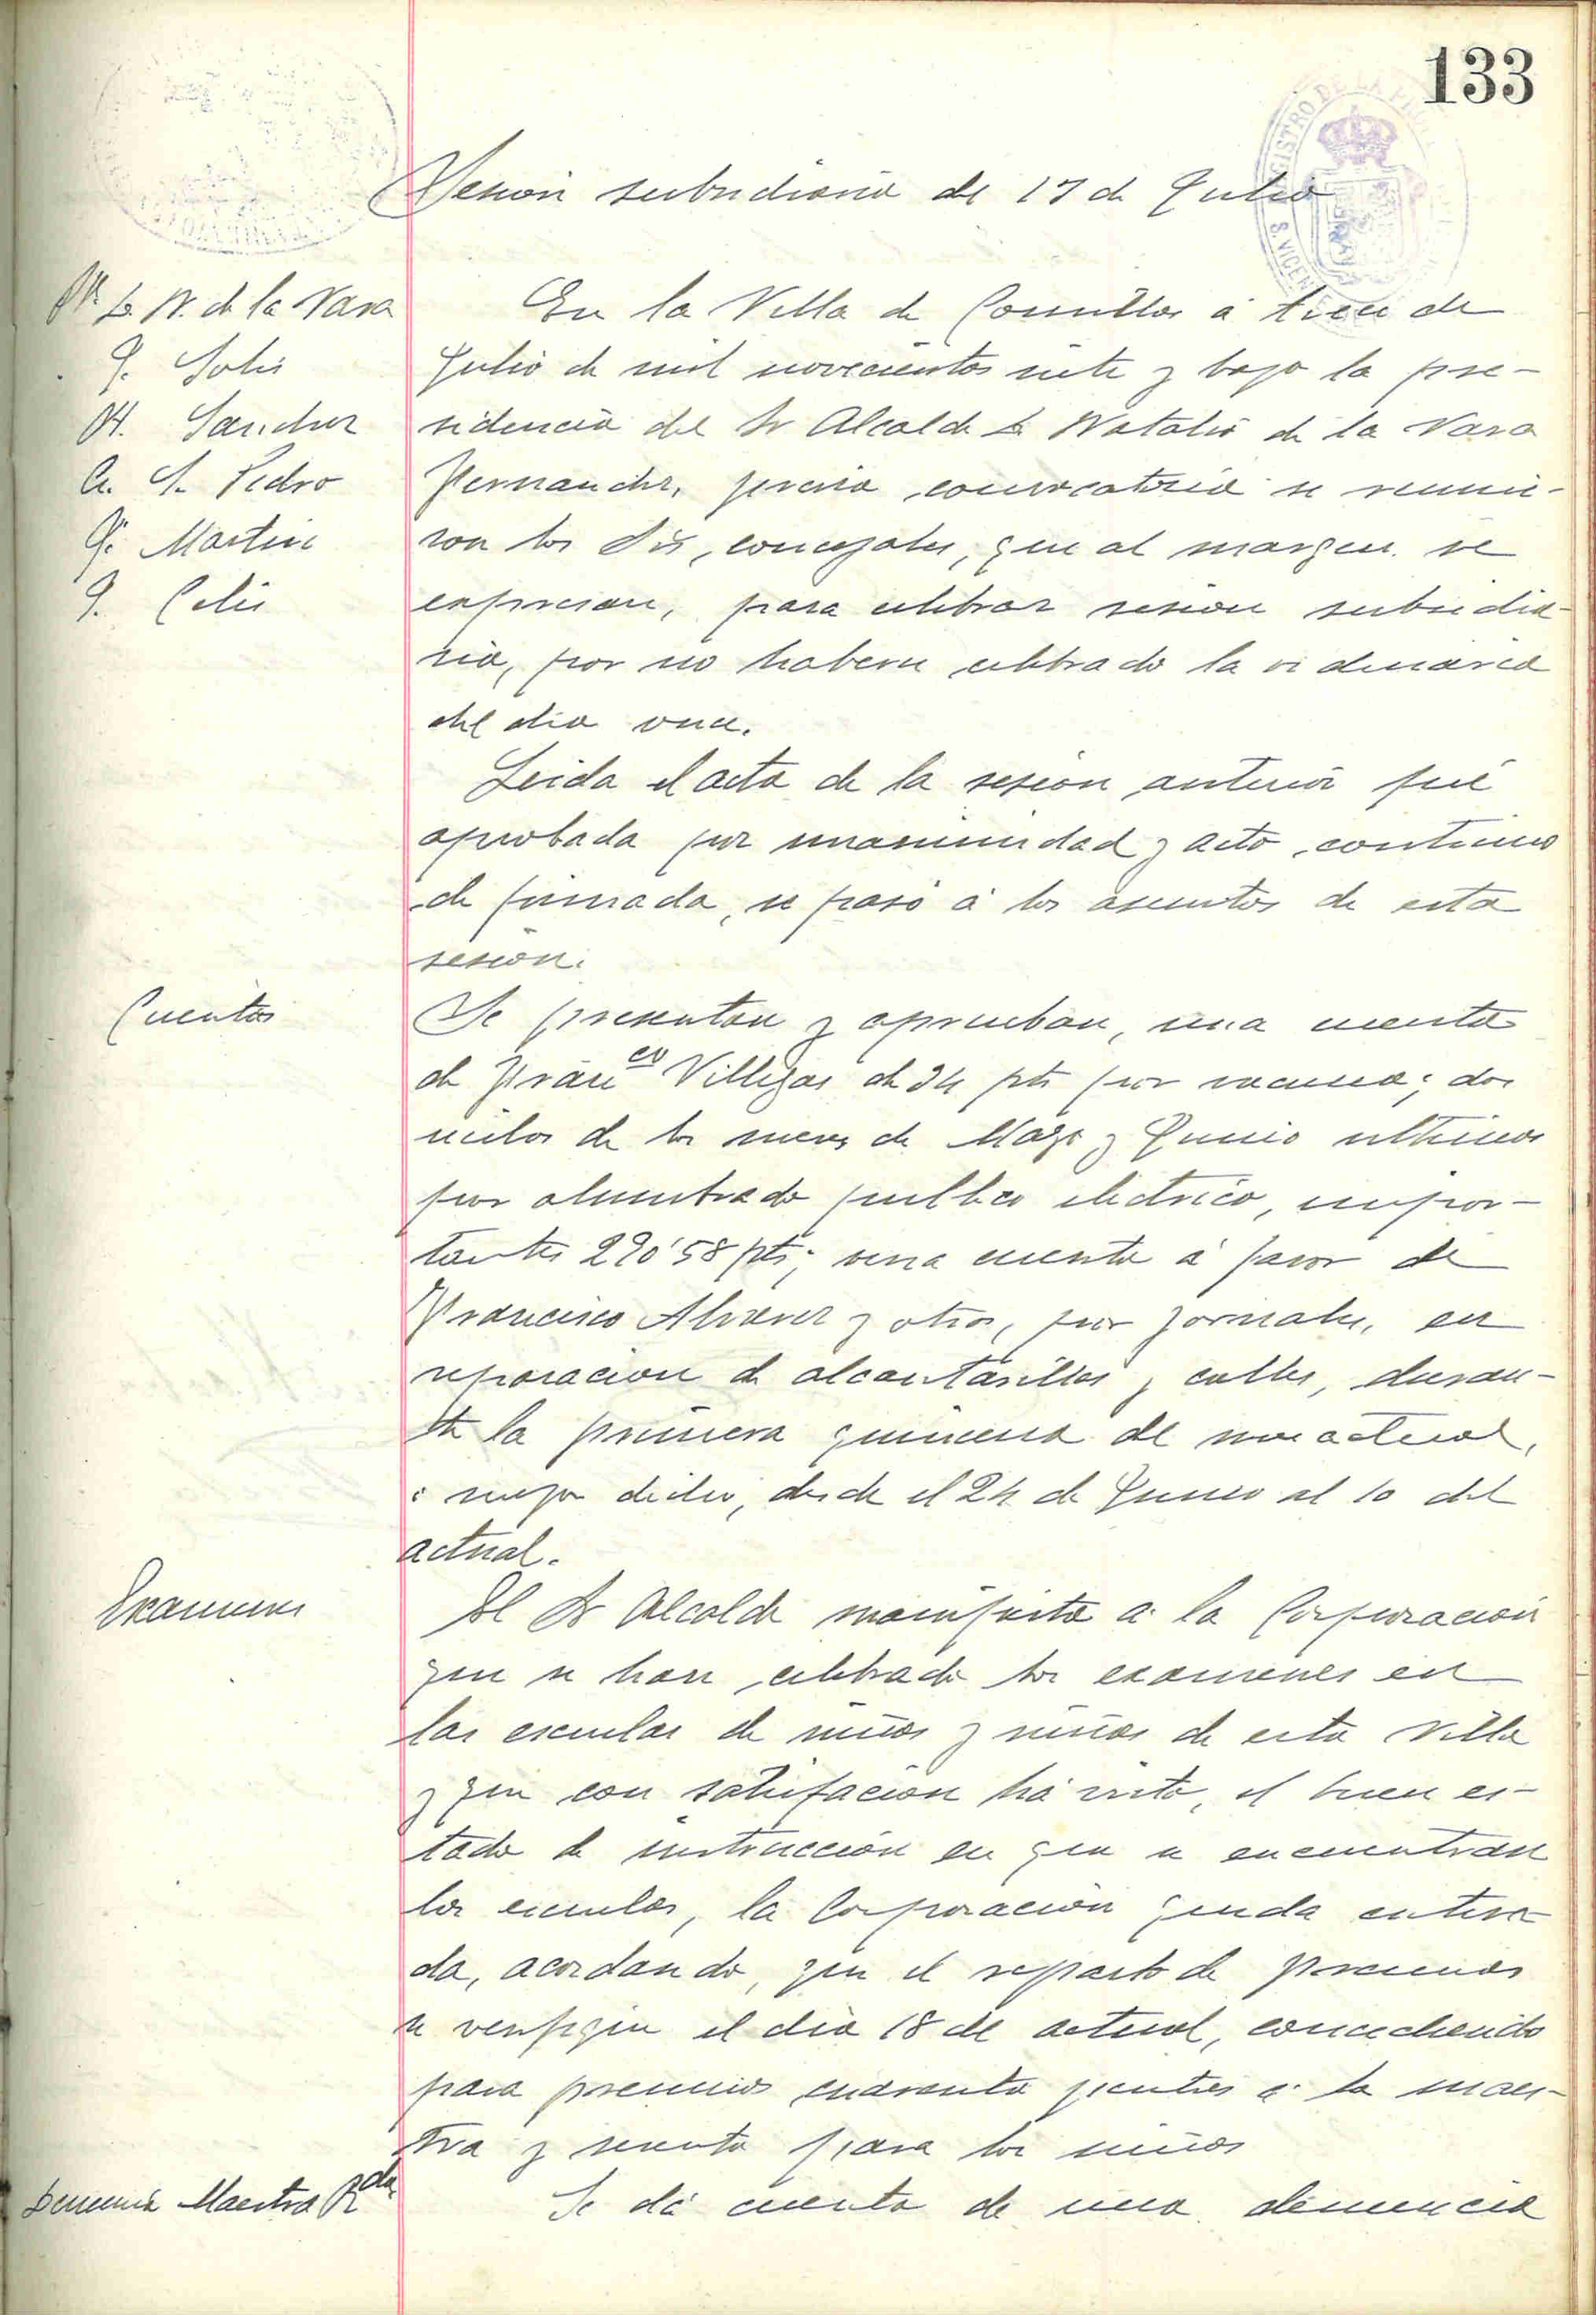 133
Sesión subsidiaria de 13 de Julio
Sr. D. N. de la Vara
J. Solis
M. Sanchez
A. S. Pedro
G. Martin
J. Celis
En la Villa de Comillas á trece de
Julio de mil novecientos siete y bajo la pre-
sidencia del Sr Alcalde D Natalio de la Vara
Fernandez, previa convocatoria se reunie-
ron los Srs, concejales, que al margen se
expresan, para celebrar sesion subsidia-
ria, por no haberse celebrado la ordinaria
del dia once.
Leida el acta de la sesion anterior fué
aprobada por unanimidad y acto continuo
de firmada, se pasó á los asuntos de esta
sesion.
Cuentas
Se presentan y aprueban, una cuenta
de Franco Villegas de 34 pts por ; dos
de los meses de Mayo y Junio ultimos
por alumbrado publico electrico, impor-
tantes 290'58 pts; una cuenta á favor de
Francisco Alvarez y otros, por jornales, en
reparacion de alcantarillas y calles, duran-
te la primera quincena del mes actual,
ó mejor dicho, desde el 24 de Junio al 10 del
actual.
Examenes
El Sr Alcalde manifiesta a la Corporacion
que se han celebrado los examenes en
las escuelas de niños y niñas de esta Villa
y que con satisfacion há visto, el buen es-
tado de instruccion en que se encuentran
las escuelas, la Corporacion queda entera-
da, acordando, que el reparto de premios
se verifique el dia 18 del actual, concediendo
para premios cuarenta pesetas a la maes-
tra y sesenta para los niños
Denuncia Maestra Rda
Se dá cuenta de una denuncia